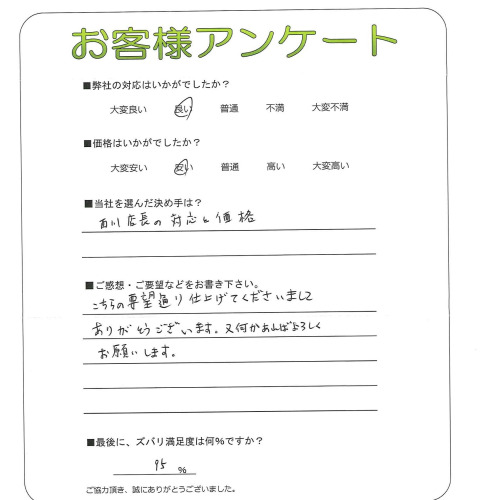 お客様アンケート
■弊社の対応はいかがでしたか？
大変良い 良い 普通 不満 大変不満
■価格はいかがでしたか？
大変安い 安い 普通 高い 大変高い
■当社を選んだ決め手は？
西川店長の対応と価格
■ご感想・ご要望などをお書き下さい。
こちらの要望通り仕上げてくださいまして
ありがとうございます。又何かあればよろしく
お願いします。
■最後に、ズバリ満足度は何%ですか？
95 %
ご協力頂き、誠にありがとうございました。